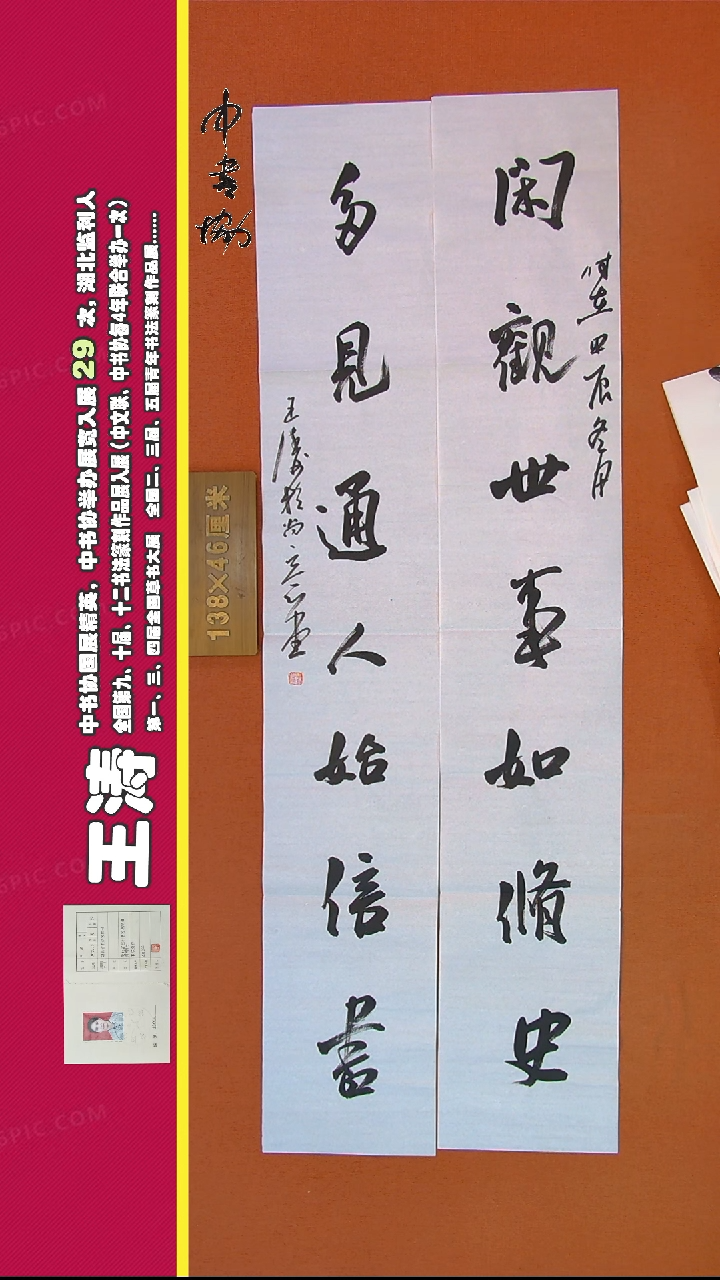 闲觀世事如脩史
時在甲辰冬月
多見通人始信書
王濤於尚意堂
中書協
138×46厘米
王涛
中书协国展精英，中书协举办展览入展 29 次，湖北监利人
全国第九、十届、十二书法篆刻作品展入展（中文联、中书协每4年联合举办一次）
第一、三、四届全国草书大展 全国二、三届、五届青年书法篆刻作品展......